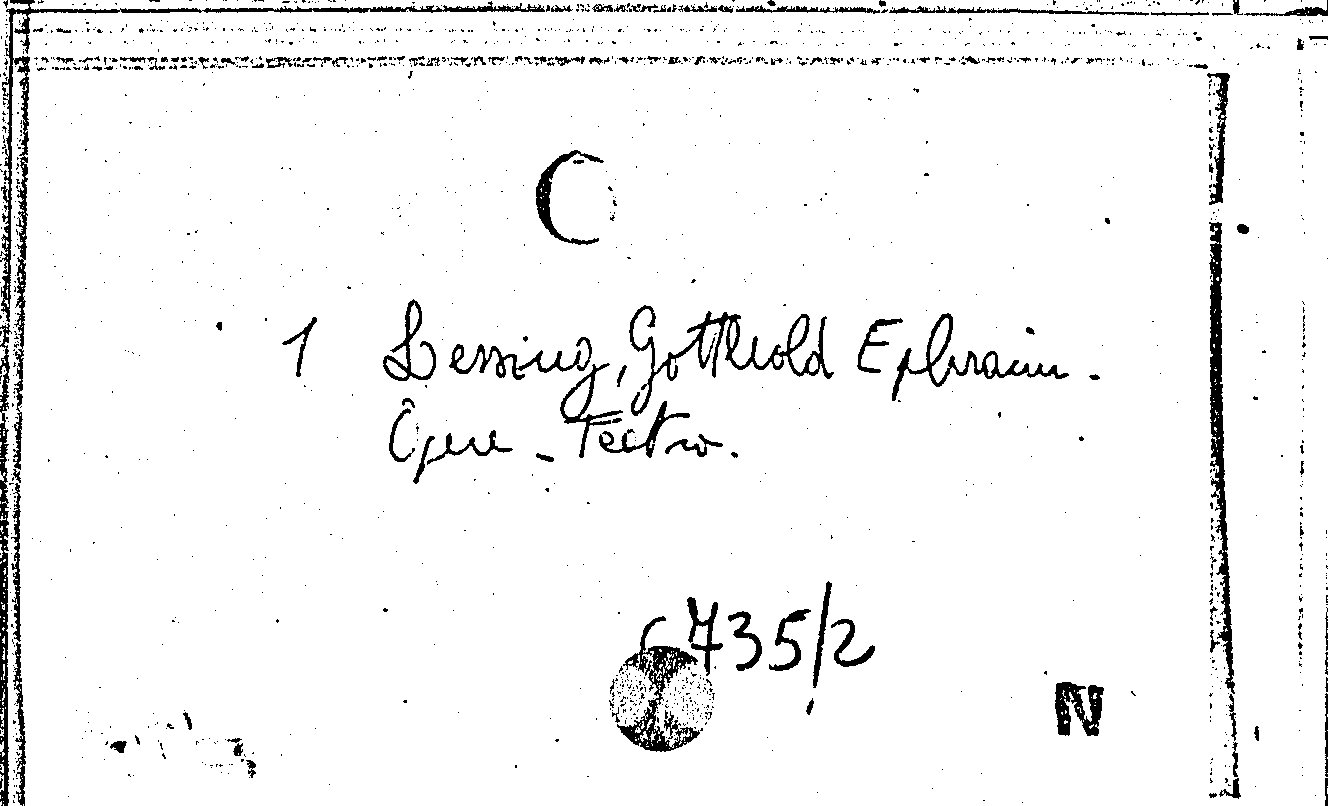 C
1 Lessing, Gotthold Ephraim.
Opere - Teatro.
735/2
N